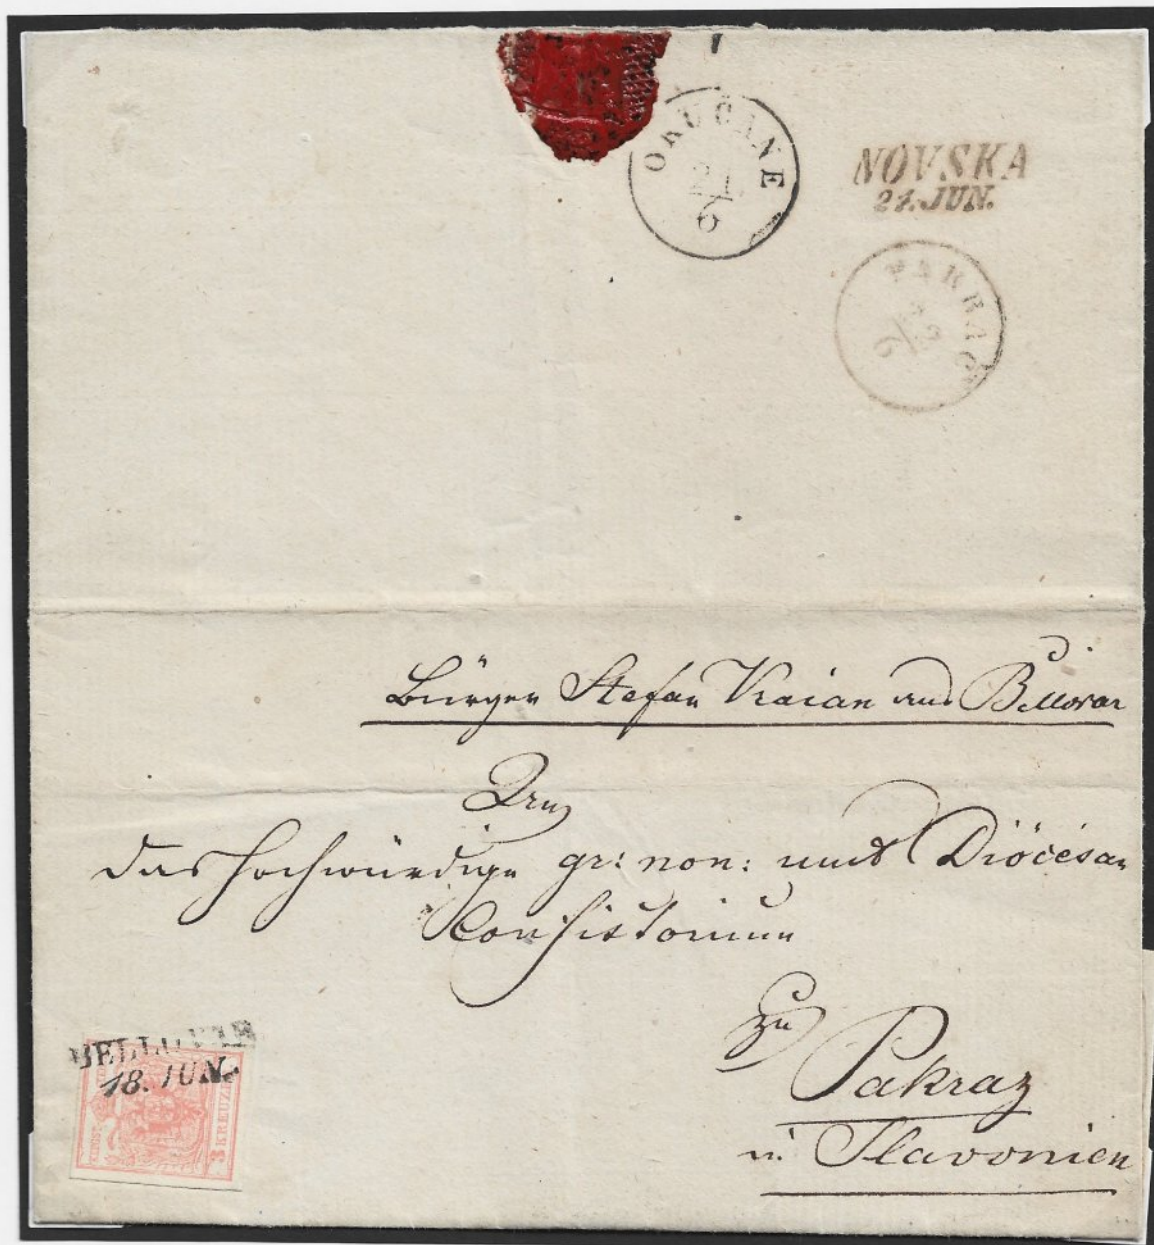 OKUČANE
21
6
NOVSKA
21. JUN.
PAKRAC
6
Bürger Stefan Kraian aus Bellovar
Das Hochwürdige gr: non: unit Diöcésan
Consistorium
zu Pakraz
in Slavonien
BELLOVAR
18. JUN.
3 KREUZER